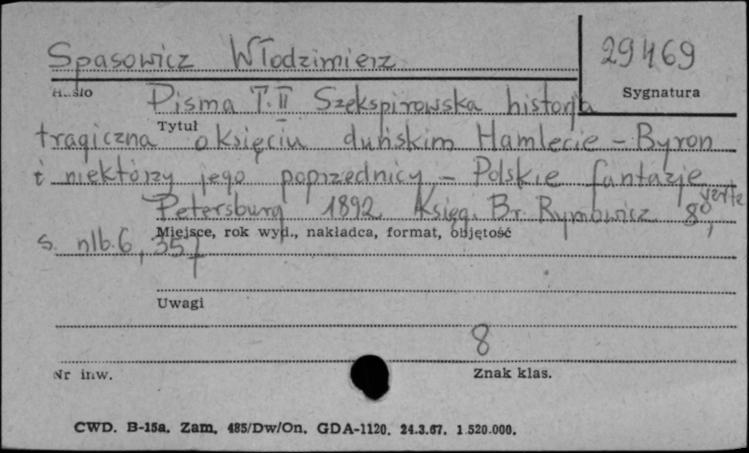 Spasowicz Włodzimierz
29469
Hasło
Sygnatura
Pisma T. II Szekspirowska historja
Tytuł
tragiczna o księciu duńskim Hamlecie – Byron
i niektórzy jego poprzednicy – Polskie fantazje
Petersburg 1892 Księg. Br. Rymowicz 8°,
Miejsce, rok wyd., nakładca, format, objętość
s. nlb. 6, 357
Uwagi
8
Nr inw.
Znak klas.
CWD. B-15a. Zam. 485/Dw/On. GDA-1120. 24.3.67. 1.520.000.